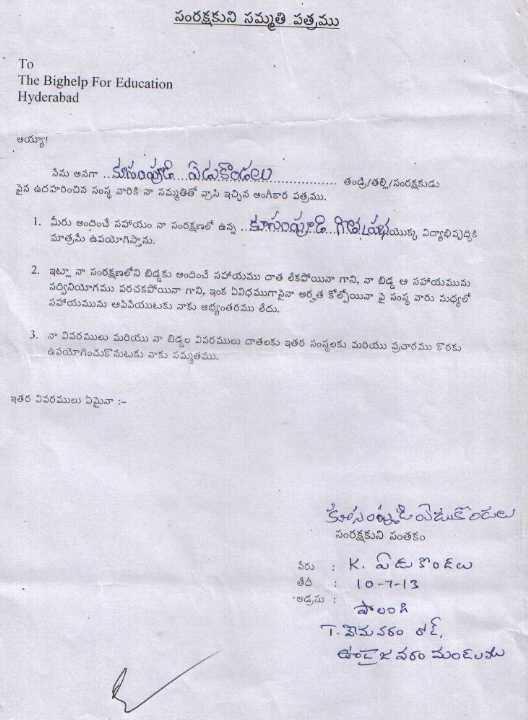 సంరక్షకుని సమ్మతి పత్రము
To
The Bighelp For Education
Hyderabad
అయ్యా!
నేను అనగా ..కూసంపూడి ఏడుకొండలు.................. తండ్రి/తల్లి/సంరక్షకుడు
పైన ఉదహరించిన సంస్థ వారికి నా సమ్మతితో వ్రాసి ఇచ్చిన అంగీకార పత్రము.
1. మీరు అందించే సహాయం నా సంరక్షణలో ఉన్న ..కూసంపూడి యొక్క విద్యాభివృద్ధికి
మాత్రమే ఉపయోగిస్తాను.
2. ఇట్లా నా సంరక్షణలోని బిడ్డకు అందించే సహాయము దాత లేకపోయినా గాని, నా బిడ్డ ఆ సహాయమును
సద్వినియోగము పరచకపోయినా గాని, ఇంక ఏవిధముగానైనా అర్హత కోల్పోయినా పై సంస్థ వారు మధ్యలో
సహాయమును ఆపివేయుటకు నాకు అభ్యంతరము లేదు.
3. నా వివరములు మరియు నా బిడ్డల వివరములు దాతలకు ఇతర సంస్థలకు మరియు ప్రచారము కొరకు
ఉపయోగించుకొనుటకు నాకు సమ్మతము.
ఇతర వివరములు ఏమైనా :-
కూసంపూడి ఏడుకొండలు
సంరక్షకుని సంతకం
పేరు : K. ఏడుకొండలు
తేదీ : 10-7-13
అడ్రసు :
పాలంగి
T. వేమవరం రోడ్,
ఉండ్రాజవరం మండలము